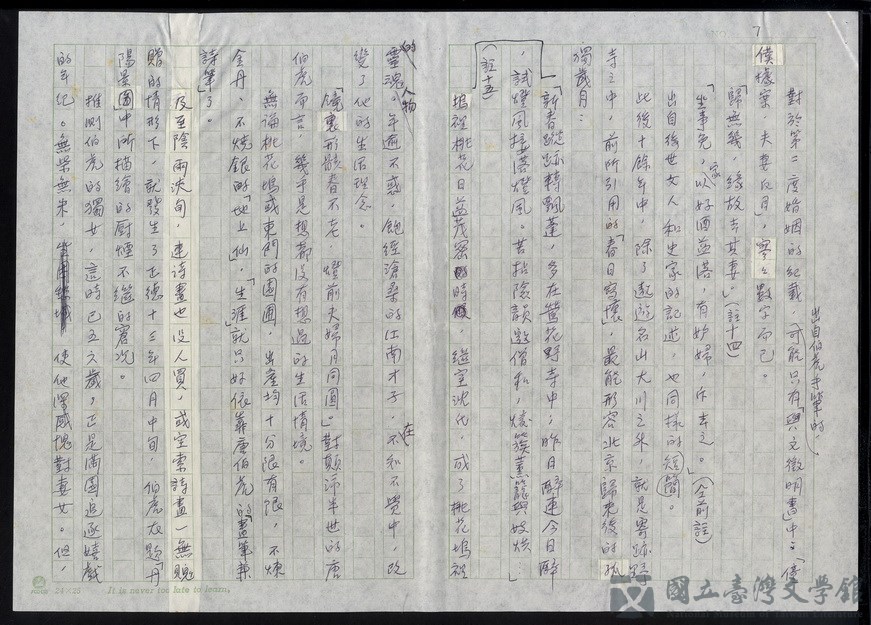 7
對於第二度婚姻的紀載,出自伯虎手筆的,可能只有「與文徵明書」中之「僕
僕據案,夫妻反目」,寥々數字而已。
「歸無幾,緣故去其妻。」(註十四)
「生事免,家以好酒益落,有妒婦,斥去之。」(仝前註)
出自後世文人和史家的記述,也同樣的短簡。
此後十餘年中,除了遨遊名山大川之外,就是寄跡野
寺之中,前所引用的「春日寫懷」,最能形容北京歸來後的孤
獨歲月:
「新春蹤跡轉飄蓬,多在鶯花野寺中;昨日醉連今日醉
,試燈風接落燈風。苦拈險韻邀僧和,煖簇薰籠與妓烘…」
(註十五)
塢裡桃花日益茂密時,繼室沈氏,成了桃花塢裡
的人物
靈魂。年逾不惑,飽經滄桑的江南才子,在不知不覺中,改
變了他的生活理念。
「鏡裏形骸春不老,燈前夫婦月同圓。」對顛沛半世的唐
伯虎而言,幾乎是想都沒有想過的生活情境。
無論桃花塢或東門的園圃,出產均十分限有限,不煉
金丹、不燒銀的「地上仙」,「生涯」就只好依靠唐伯虎的「畫筆兼
詩筆」了。
及至陰雨浹旬,連詩畫也沒人買,或空索詩畫一無賜
贈的情形下,就發生了正德十三年四月中旬,伯虎在題「丹
陽景圖中所描繪的廚煙不繼的窘況。
推測伯虎的獨女,這時已五六歲,正是滿園追逐嬉戲
的年紀。無柴無米,使他深感愧對妻女。但,
24×25 It is never too late to learn.
國立臺灣文學館